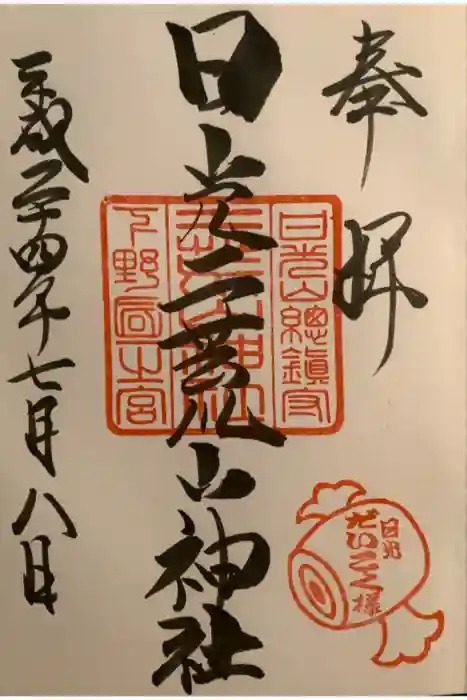 奉拝
日光二荒山神社
平成二十四年七月八日
日光山總鎮守
下野國一之宮
日光
だいこく様